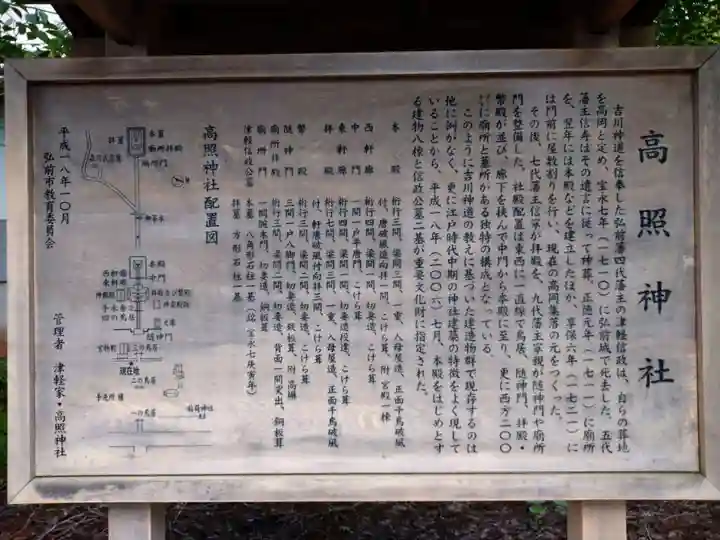 高照神社
吉川神道を信奉した弘前藩四代藩主の津軽信政は、自らの葬地
を高岡と定め、宝永七年(一七一〇)に弘前城で死去した。五代
藩主信寿はその遺言に従って神葬、正徳元年(七一一)に廟所
を、翌年には本殿などを建立したほか、享保六年(一七二一)に
は門前に屋敷割りを行い、現在の高岡集落の元をつくった。
その後、七代藩主信寧が拝殿を、九代藩主寧親が随神門や廟所
門を整備した。社殿配置は東西に一直線で鳥居、随神門、拝殿・
幣殿が並び、廊下を挟んで中門から本殿に至り、更に西方二〇〇
に廟所と墓所がある独特の構成となっている。
このように吉川神道の教えに基づいた建造物群で現存するのは
他に例がなく、更に江戸時代中期の神社建築の特徴をよく現して
いることから、平成一八年(二〇〇六)七月、本殿をはじめとす
る建物八棟と信政公墓二基が重要文化財に指定された。
本殿 桁行三間、梁間三間、一重、入母屋造、正面千鳥破風
付、唐破風造向拝一間、こけら葺、附 宮殿一棟
西軒廊 桁行四間、梁間一間、切妻造、こけら葺
中門 一間一戸平唐門、こけら葺
東軒廊 桁行四間、梁間一間、切妻造段違、こけら葺
拝殿 桁行七間、梁間三間、一重、入母屋造、正面千鳥破風
付、軒唐破風付向拝三間、こけら葺
幣殿 桁行三間、梁間二間、切妻造、こけら葺
随神門 三間一戸八脚門、切妻造、鉄板葺、附 高塀
廟所拝殿 桁行三間、梁間二間、切妻造、背面一間突出、銅板葺
廟所門 一間腕木門、切妻造、銅板葺
津軽信政公墓 本墓 八角形石柱一基(銘 宝永七庚寅年)
拝墓 方形石柱一基
高照神社配置図
本墓
拝墓
廟所拝殿
廟所門
神苑
本殿
西軒廊
中門
東軒廊
拝殿及び幣殿
神饌殿
随神門
宝物殿
三の鳥居
現在地
二の鳥居
手洗所
一の鳥居
平成一八年一〇月
弘前市教育委員会
管理者 津軽家・高照神社